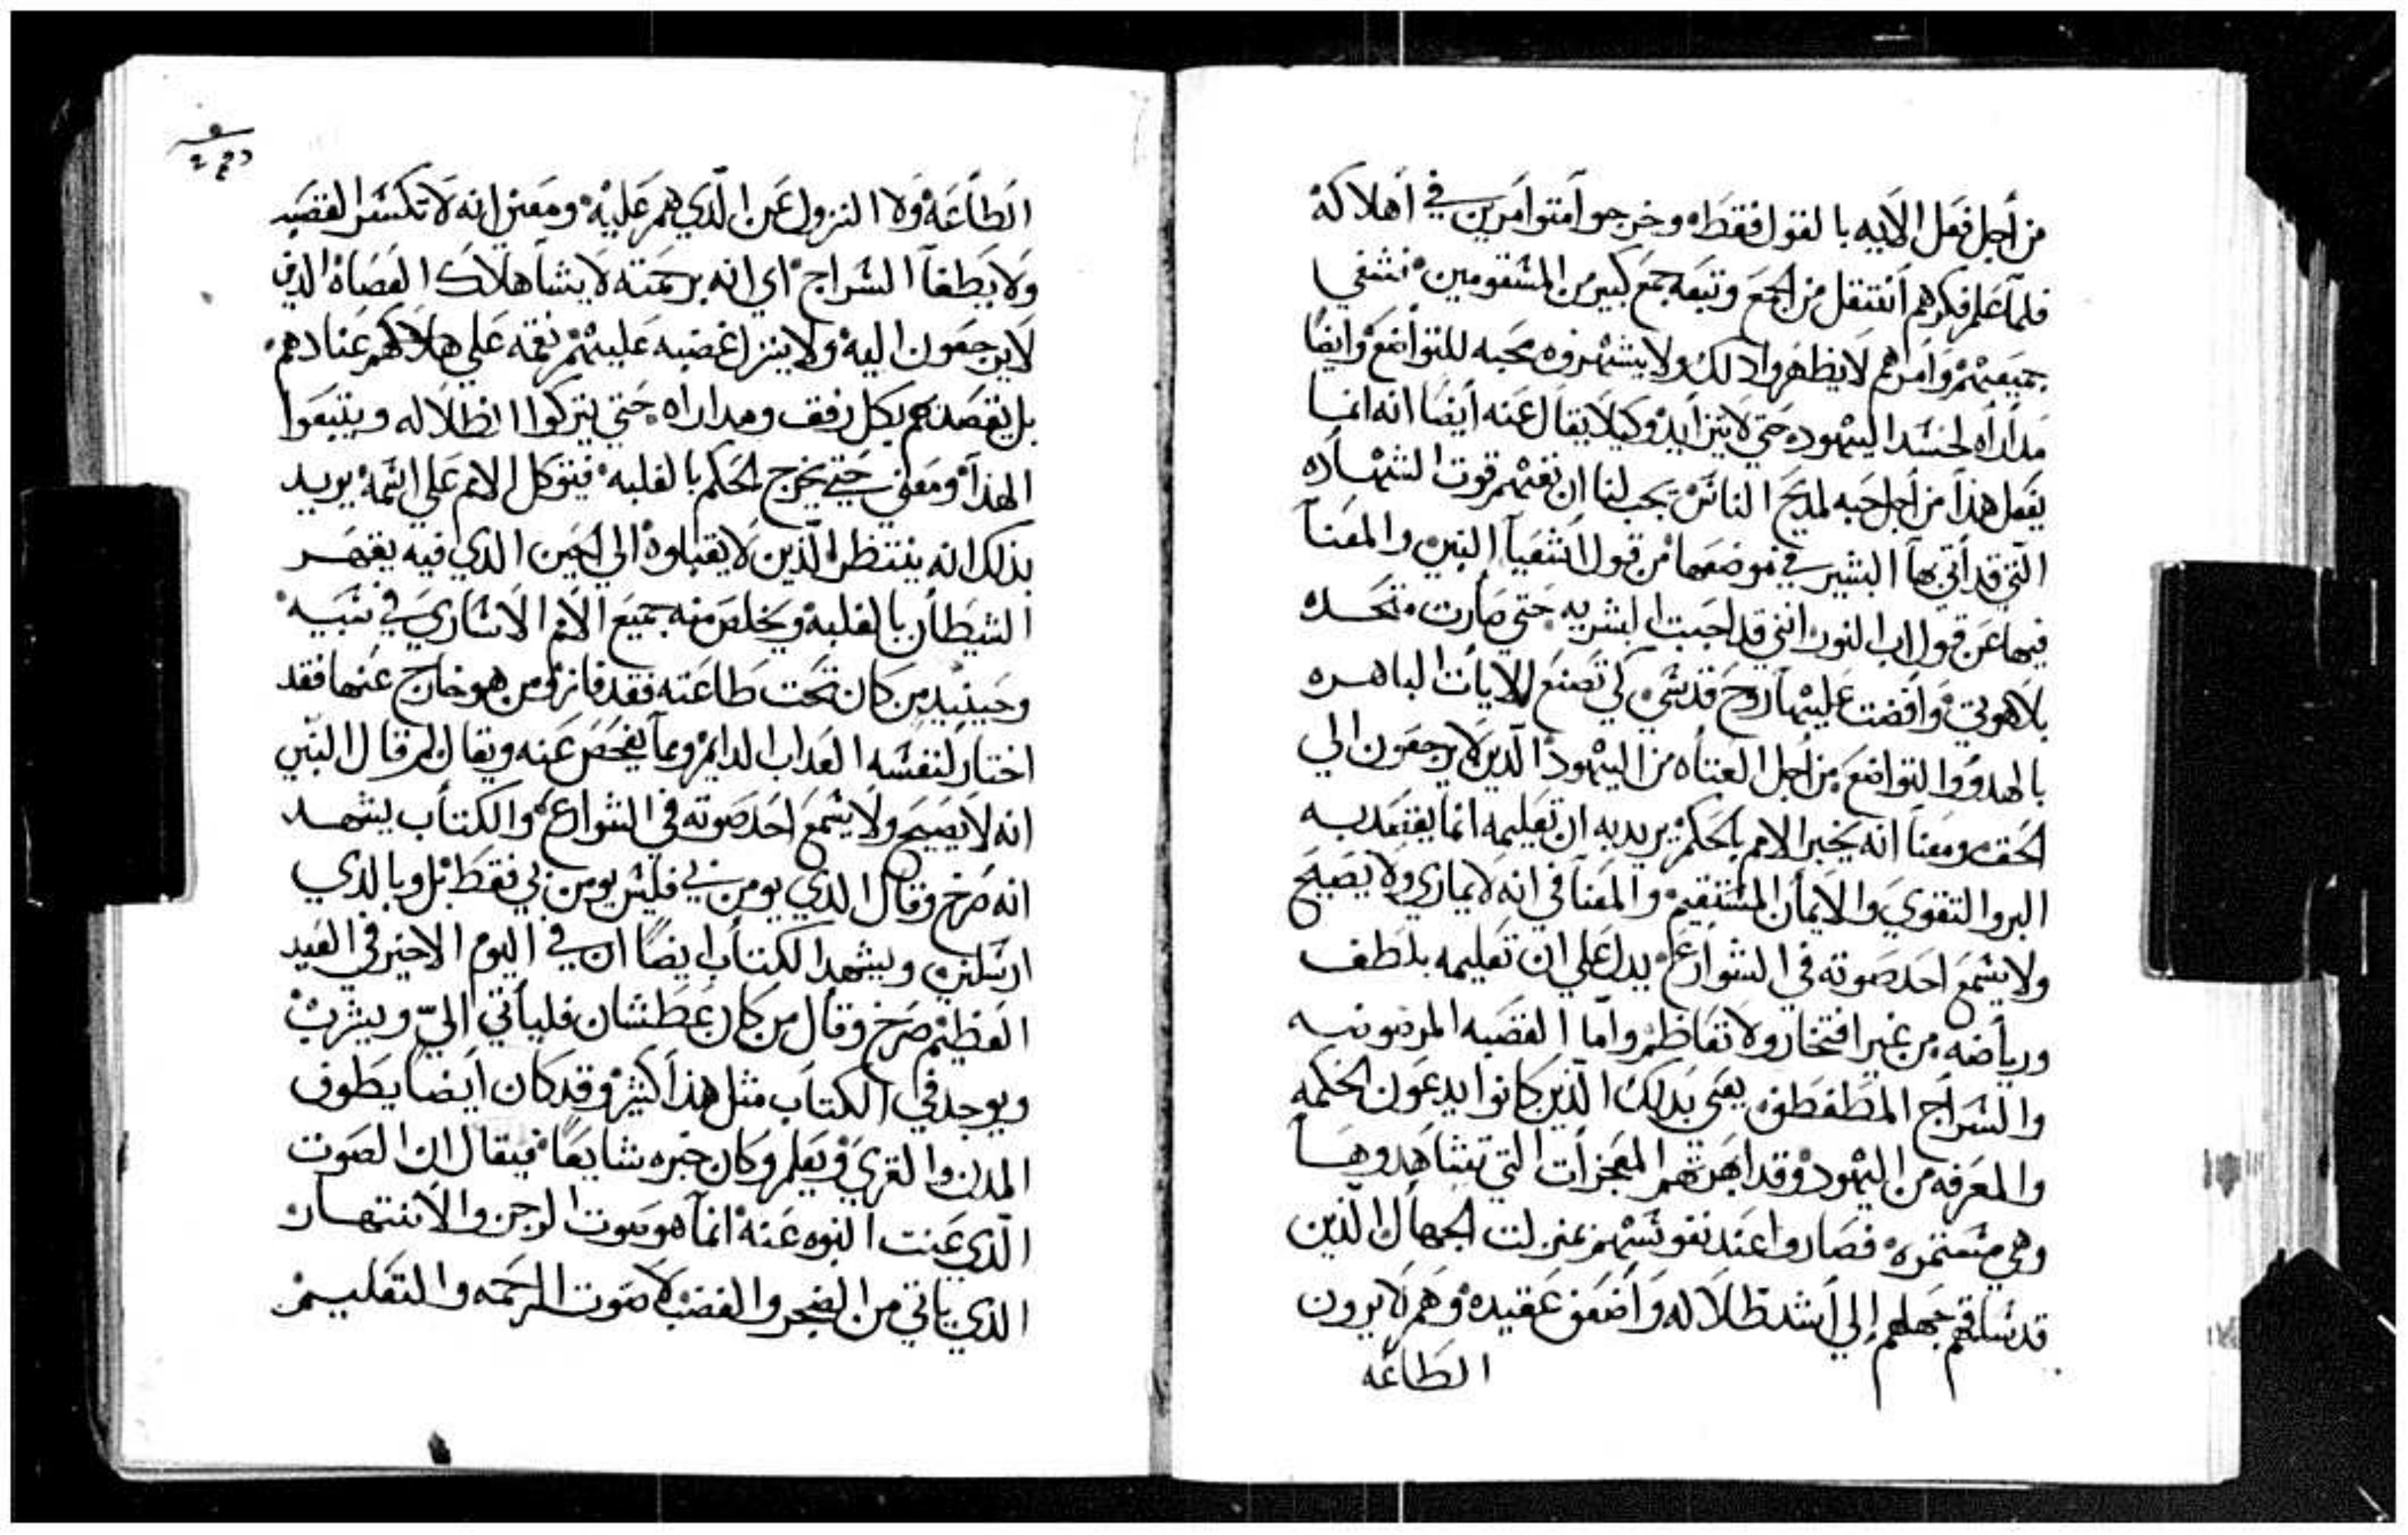 من أجل فعل الآيه بالقول فقط وخرجوا متوامرين في أهلاكه
فلما علم فكرهم أنتقل من الجمع وتبعه جمع كبير من المسقومين فشفي
جميعهم وأمرهم لا يظهروا ذلك ولا يشهروه محبه للتواضع وايضا
مداراه لحسد اليهود حتي لا يتزايد وكيلا يقال عنه أيضا انه انما
يفعل هذا من أجل حبه لمديح الناس يجب لنا ان نفهم قوت الشهاده
التي قد أتي بها البشير في موضعها من قول اشعيا النبي والمعنا
فيها عن قول اب النور انني قد احببت البشريه حتي صارت متحده
بلاهوتي وافضت عليها روح قدسي كي تصنع الايات الباهره
بالهدوو والتواضع من أجل العتاه من اليهود الذين لا يرجعون الي
الحق ومعنا انه يخبر الامم بالحكم يريد به ان تعليمه انما يقتصد به
البر والتقوي والايمان المستقيم والمعنا في انه لا يماري ولا يصيح
ولا يسمع احد صوته في الشوارع يدل علي ان تعليمه بلطف
ورياضه من غير افتخار ولا تعاظم واما القصبه المرضوضه
والسراج المطفطف يعني بذلك الذين كانوا يدعون الحكمه
والمعرفه من اليهود وقد ابهرتهم المعجزات التي تشاهدوها
وهي مستمره فصاروا عند نفوسهم بمنزلت الجهال الذين
قد ساقهم جهلهم إلي أشد ظلاله وأضعف عقيده وهم لا يرون
الطاعه
الطاعه ولا النزول عن الذي هم عليه ومعني انه لا تكسر القصبه
ولا يطفآ السراج اي انه برحمته لا يشا هلاك العصاه الذين
لا يرجعون اليه ولا ينزل غضبه عليهم نقمه علي هلاكهم عنادهم
بل يقصدهم بكل رفق ومداراه حتي يتركوا الظلاله ويتبعوا
الهدآ ومعني حتي يخرج الحكم بالغلبه فيتوكل الامم علي اسمه يريد
بذلك انه ينتظر الذين لا يقبلوه الي الحين الذي فيه يقهر
الشيطان بالغلبه ويخلص منه جميع الامم الاساري في سبيه
وحينيد من كان تحت طاعته فقد فاز ومن هو خارج عنها فقد
اختار لنفسه العداب الدايم ومما يفحص عنه ويقال لم قال النبي
انه لا يصيح ولا يسمع احد صوته في الشوارع والكتاب يشهد
انه صرخ وقال الذي يومن بي فليس يومن بي فقط بل وبالذي
ارسلني ويشهد الكتاب ايضا ان في اليوم الاخير في العيد
العظيم صرخ وقال من كان عطشان فليأتي الي ويشرب
ويوجد في الكتاب مثل هذا كثير وقد كان ايضا يطوف
المدن والقري ويعلم وكان خبره شايعا فيقال ان الصوت
الذي عنت النبوه عنه انما هو صوت الرجز والانتهار
الذي ياتي من الضجر والغضب لا صوت الرحمه والتعليم